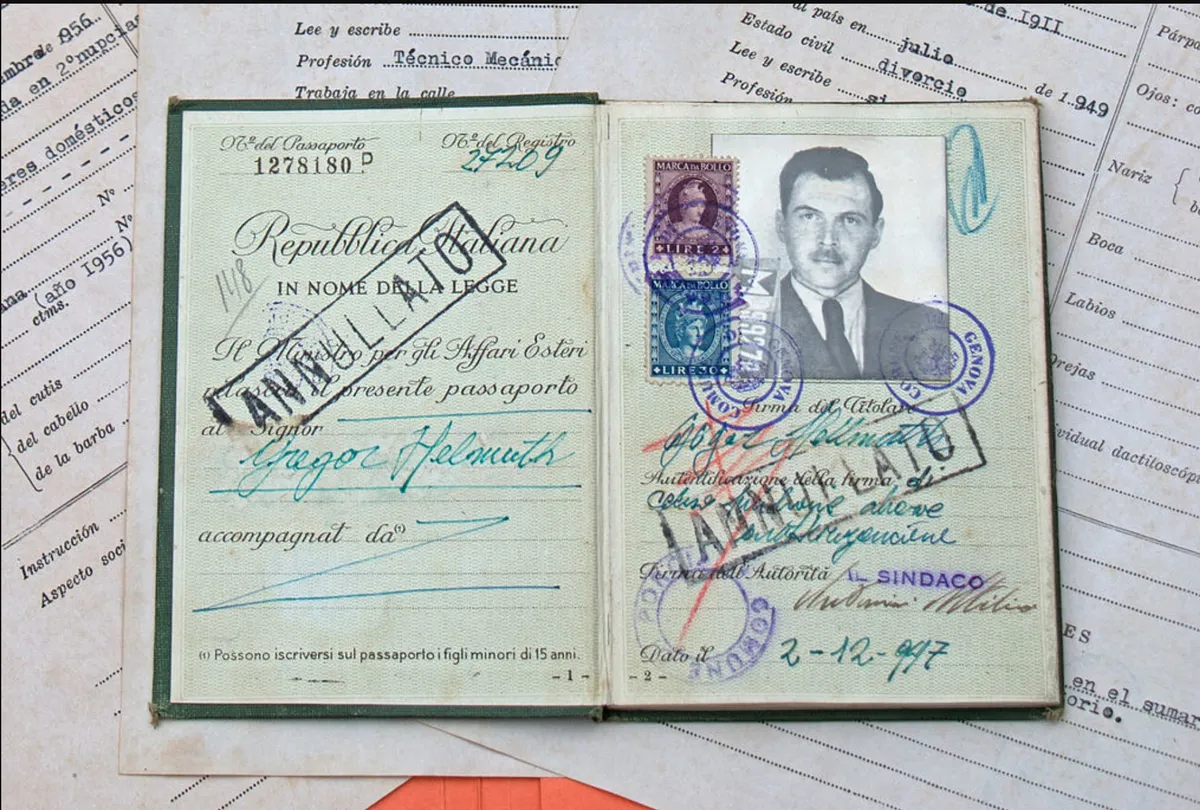 Lee y escribe
Profesión Técnico Mecánic
Trabaja en la calle
de 1911
al país en julio de 1.949
Estado civil divorcio
Lee y escribe si
Profesión
Párpa
Ojos: co
Nariz
Boca
Labios
Orejas
vidual dactiloscóp
ES
en el sumar
orio.
mbre de 956.
da en 2º nupcias
eres domésticos
Nº
Nº
(año 1956)
ctms.
del cutis
del cabello
de la barba
Instrucción
Aspecto soci
Nº del Passaporto
1278180 P
Nº del Registro
27209
Repubblica Italiana
IN NOME DELLA LEGGE
1118
Il Ministro per gli Affari Esteri
rilascia il presente passaporto
al Signor
Gregor Helmuth
accompagnat da(1)
(1) Possono iscriversi sul passaporto i figli minori di 15 anni.
- 1 -
ANNULLATO
MARCA DA BOLLO
LIRE 2
MARCA DA BOLLO
LIRE 30
COMU
GENOVA
GENOVA
CO
Firma del Titolare
Gregor Hellmuth
Autentificazione della firma di
ANNULLATO
Firma dell'Autorità IL SINDACO
COMUNE
Dato il 2-12-997
- 2 -